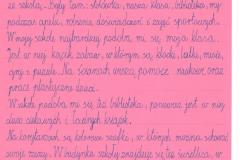 ze szkołą. Były tam: stołówka, nasza klasa, biblioteka,
podczas apelu, robienia doświadczeń i zajęć sportowych.
W mojej szkole najbardziej podoba mi się moja klasa.
Jest w niej kącik zabaw, w którym są klocki, lalki, misie,
gry i puzzle. Na ścianach wiszą pomoce naukowe oraz
prace plastyczne dzieci.
W szkole podoba mi się też biblioteka, ponieważ jest w niej
dużo ciekawych i ładnych książek.
Na korytarzach są kolorowe szafki, w których można schować
swoje rzeczy. W budynku szkoły znajduje się też świetlica, w